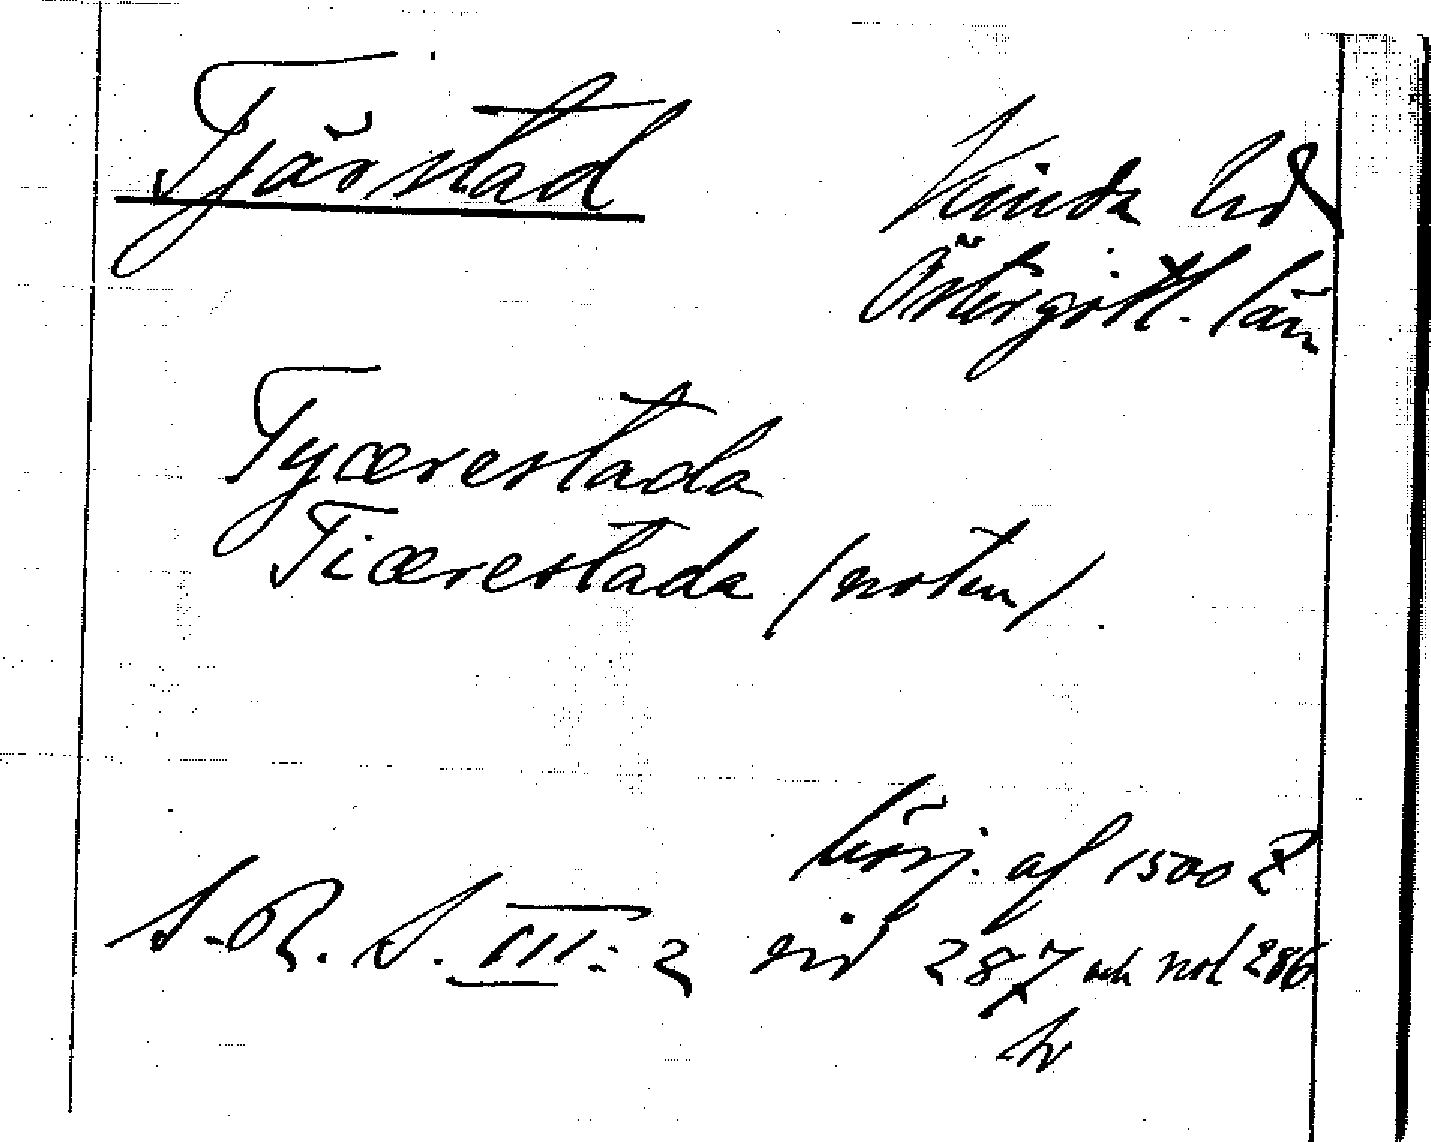 Tjärstad
Kinda hd
Östergötl. län
Tycerestada
Ticerestada (noten)
börj. af 1500 t
S. R. S. III: 2 sid 287 och not 286
h